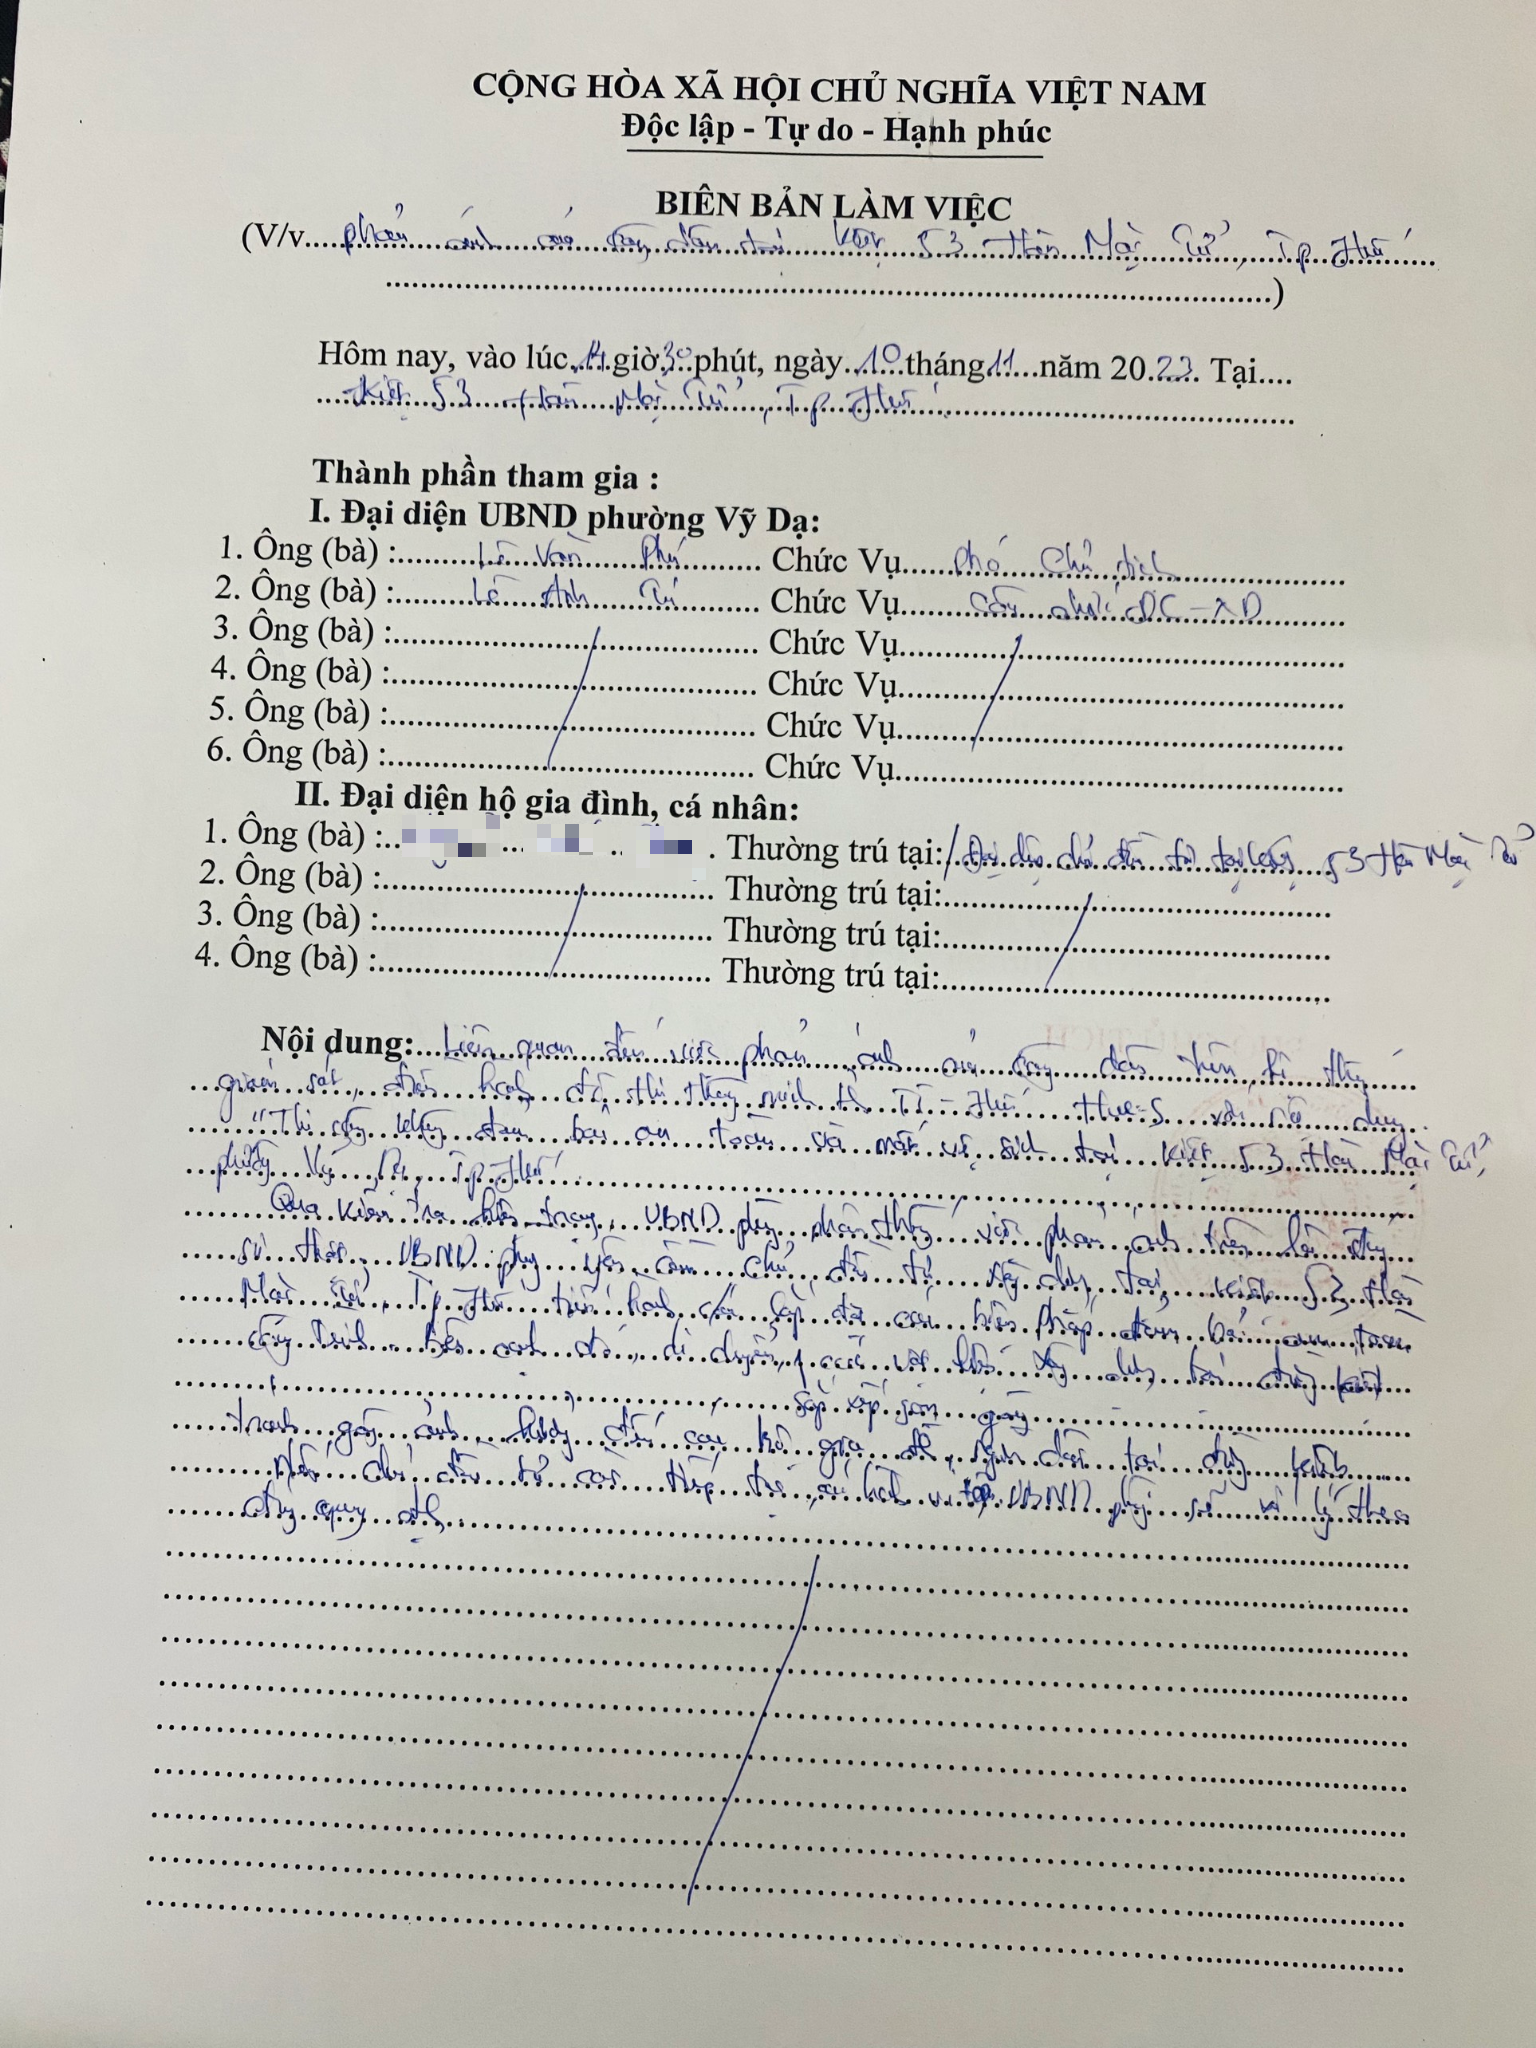 CỘNG HÒA XÃ HỘI CHỦ NGHĨA VIỆT NAM
Độc lập - Tự do - Hạnh phúc
BIÊN BẢN LÀM VIỆC
(V/v phản ánh của công dân tại kiệt 53 Hàn Mặc Tử, Tp Huế
)
Hôm nay, vào lúc 14 giờ 30 phút, ngày 10 tháng 11 năm 2023. Tại
Kiệt 53 Hàn Mặc Tử, Tp Huế
Thành phần tham gia :
I. Đại diện UBND phường Vỹ Dạ:
1. Ông (bà) : Lê Văn Phú Chức Vụ Phó Chủ tịch
2. Ông (bà) : Lê Anh Tú Chức Vụ Công chức ĐC-XD
3. Ông (bà) : Chức Vụ
4. Ông (bà) : Chức Vụ
5. Ông (bà) : Chức Vụ
6. Ông (bà) : Chức Vụ
II. Đại diện hộ gia đình, cá nhân:
1. Ông (bà) : Thường trú tại: / Đại diện chủ đầu tư tại kiệt 53 Hàn Mặc Tử
2. Ông (bà) : Thường trú tại:
3. Ông (bà) : Thường trú tại:
4. Ông (bà) : Thường trú tại:
Nội dung: Liên quan đến việc phản ánh của công dân trên hệ thống
giám sát, điều hành đô thị thông minh tỉnh TT-Huế Hue-S với nội dung
"Thi công không đảm bảo an toàn và mất vệ sinh tại kiệt 53 Hàn Mặc Tử,
phường Vỹ Dạ, Tp Huế
Qua kiểm tra hiện trạng, UBND phường nhận thấy việc phản ánh trên là đúng
sự thật, UBND phường yêu cầu chủ đầu tư xây dựng tại kiệt 53 Hàn
Mặc Tử, Tp Huế tiến hành lắp đặt các biện pháp đảm bảo an toàn
công trình, bên cạnh đó, di chuyển, các vật liệu xây dựng tại đường kiệt
, sắp xếp gọn gàng
tránh gây ảnh hưởng đến các hộ gia đình, người dân tại đường kiệt
Nếu chủ đầu tư còn tiếp tục UBND phường sẽ xử lý theo
đúng quy định.